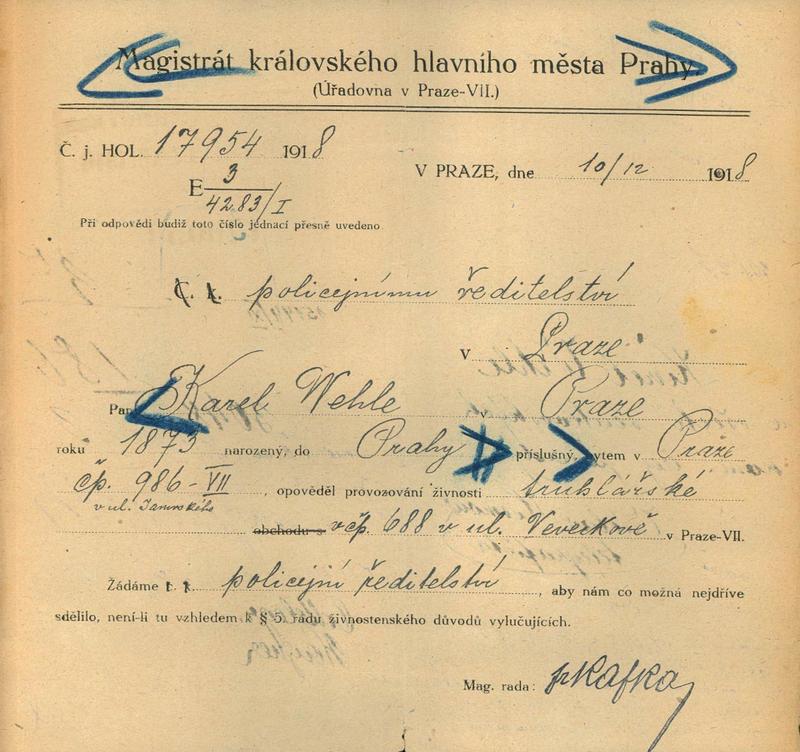 Magistrát královského hlavního města Prahy.
(Úřadovna v Praze-VII.)
Č. j. HOL. 17954 1918
V PRAZE, dne 10/12 1918
E 3
4283/I
Při odpovědi budiž toto číslo jednací přesně uvedeno
C. k. policejnímu ředitelství
v Praze
Pan Karel Wehle v Praze
roku 1873 narozený, do Prahy příslušný, bytem v Praze
čp. 986-VII, opověděl provozování živnosti truhlářské
v ul.
obchodu s v čp. 688 v ul. Veverkově v Praze-VII.
Žádáme c. k. policejní ředitelství, aby nám co možná nejdříve
sdělilo, není-li tu vzhledem k § 5. řádu živnostenského důvodů vylučujících.
Mag. rada: Kafka